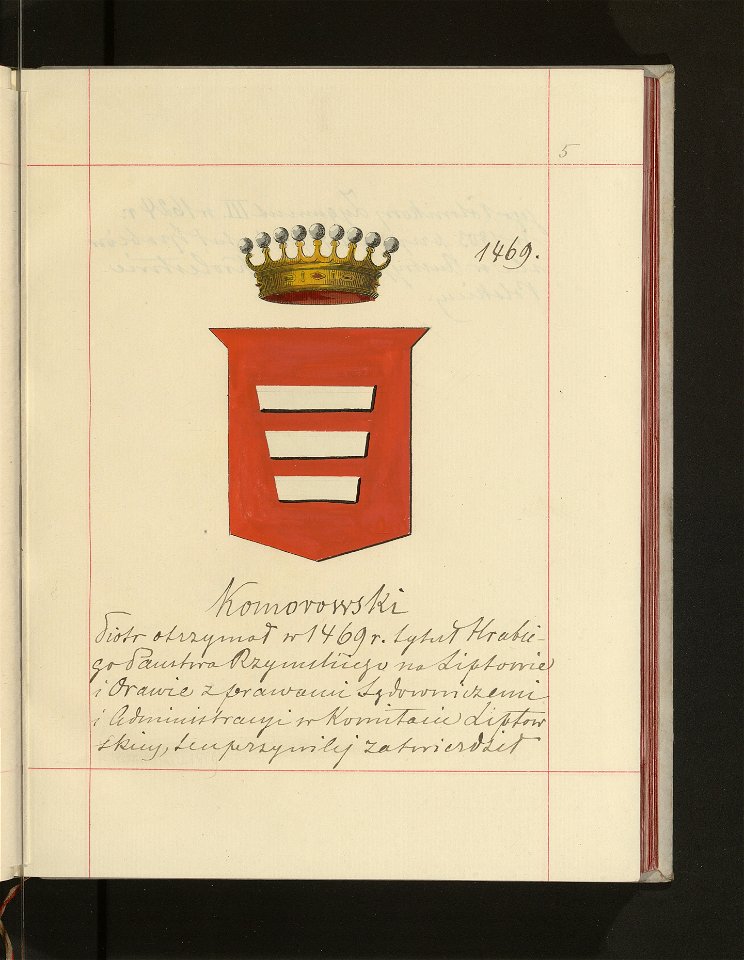 5
1469.
Komorowski
Piotr otrzymał w 1469 r. tytuł Hrabie-
go Państwa Rzymskiego na Liptowie
i Orawie z prawami Sądowniczemi
i Administracyi w Komitacie Liptow
skiej, ten przywilej zatwierdził